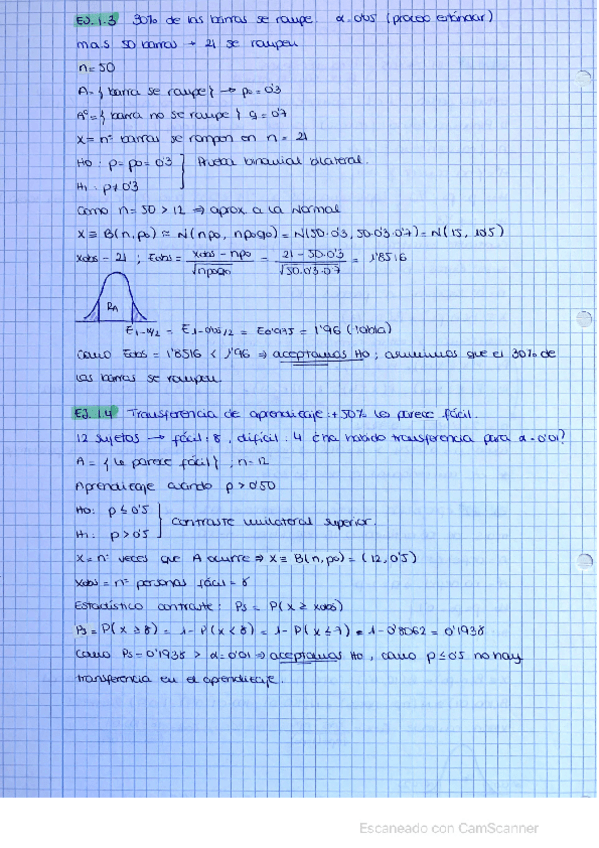 EJ. 1.3 30% de las barras se rompe. α = 0'05 (proceso estándar)
mas 50 barras → 21 se rompen
n = 50
A = { barra se rompe } → p₀ = 0'3
Aᶜ = { barra no se rompe } q = 0'7
X = nº barras se rompen en n = 21
H₀ : p = p₀ = 0'3 } Prueba binomial bilateral.
H₁ : p ≠ 0'3
Como n = 50 > 12 ⇒ aprox a la Normal
X ≡ B(n, p₀) ≈ N(np₀, np₀q₀) = N(50·0'3, 50·0'3·0'7) = N(15, 10'5)
Xobs = 21 ; Zobs = (Xobs - np₀)/√np₀q₀ = (21 - 50·0'3)/√50·0'3·0'7 = 1'8516
RA
Z₁₋α/₂ = Z₁₋₀'₀₅/₂ = Z₀'₉₇₅ = 1'96 (tabla)
Como Zobs = 1'8516 < 1'96 ⇒ aceptamos H₀ ; asumimos que el 30% de
las barras se rompen.
EJ. 1.4 Transferencia de aprendizaje : + 50% le parece fácil.
12 sujetos → fácil : 8, difícil : 4 ¿ha habido transferencia para α = 0'01?
A = { le parece fácil } , n = 12
Aprendizaje cuando p > 0'50
H₀ : p ≤ 0'5 } contraste unilateral superior.
H₁ : p > 0'5
X = nº veces que A ocurre ⇒ X ≡ B(n, p₀) = (12, 0'5)
Xobs = nº personas fácil = 8
Estadístico contraste : Ps = P(X ≥ Xobs)
Ps = P(X ≥ 8) = 1 - P(X < 8) = 1 - P(X ≤ 7) = 1 - 0'8062 = 0'1938
Como Ps = 0'1938 > α = 0'01 ⇒ aceptamos H₀ , como p ≤ 0'5 no hay
transferencia en el aprendizaje.
Escaneado con CamScanner